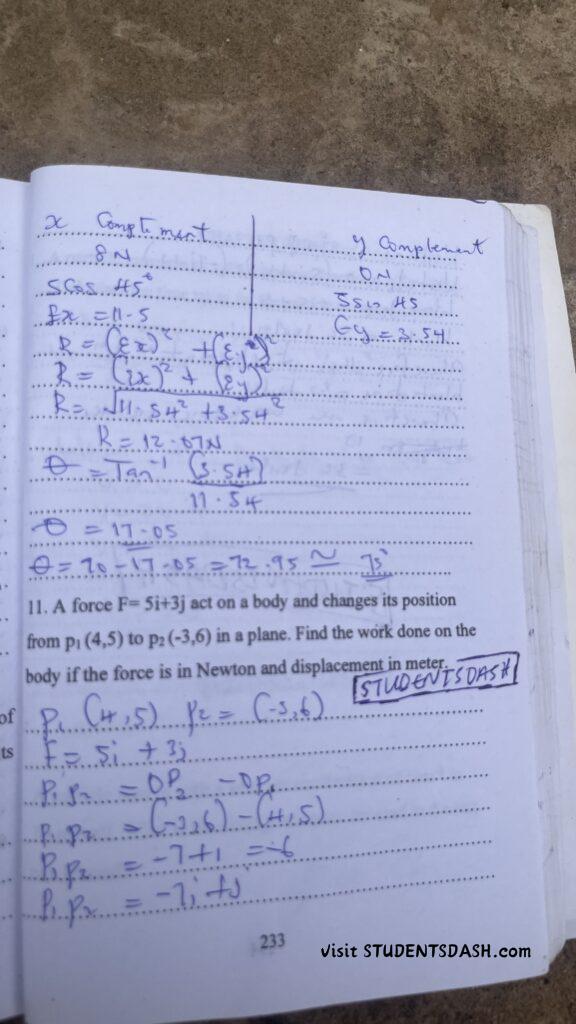 x Complement
8N
5Cos 45°
Ɛx = 11.5
y Complement
0N
5sin 45
Ɛy = 3.54
R = (Ɛx)² + (Ɛy)²
R = (Ɛx)² + (Ɛy)²
R = √11.54² + 3.54²
R = 12.07N
θ = Tan⁻¹ (3.54)
11.54
θ = 17.05
θ = 90 - 17.05 = 72.95 ≃ 73°
11. A force F= 5i+3j act on a body and changes its position
from p₁ (4,5) to p₂ (-3,6) in a plane. Find the work done on the
body if the force is in Newton and displacement in meter.
STUDENTSDASH
of
ts
P₁ (4,5) P₂ = (-3,6)
F = 5i + 3j
P₁P₂ = OP₂ - OP₁
P₁P₂ = (-3,6) - (4,5)
P₁P₂ = -7+1 = -6
P₁P₂ = -7i + j
233
visit STUDENTSDASH.com